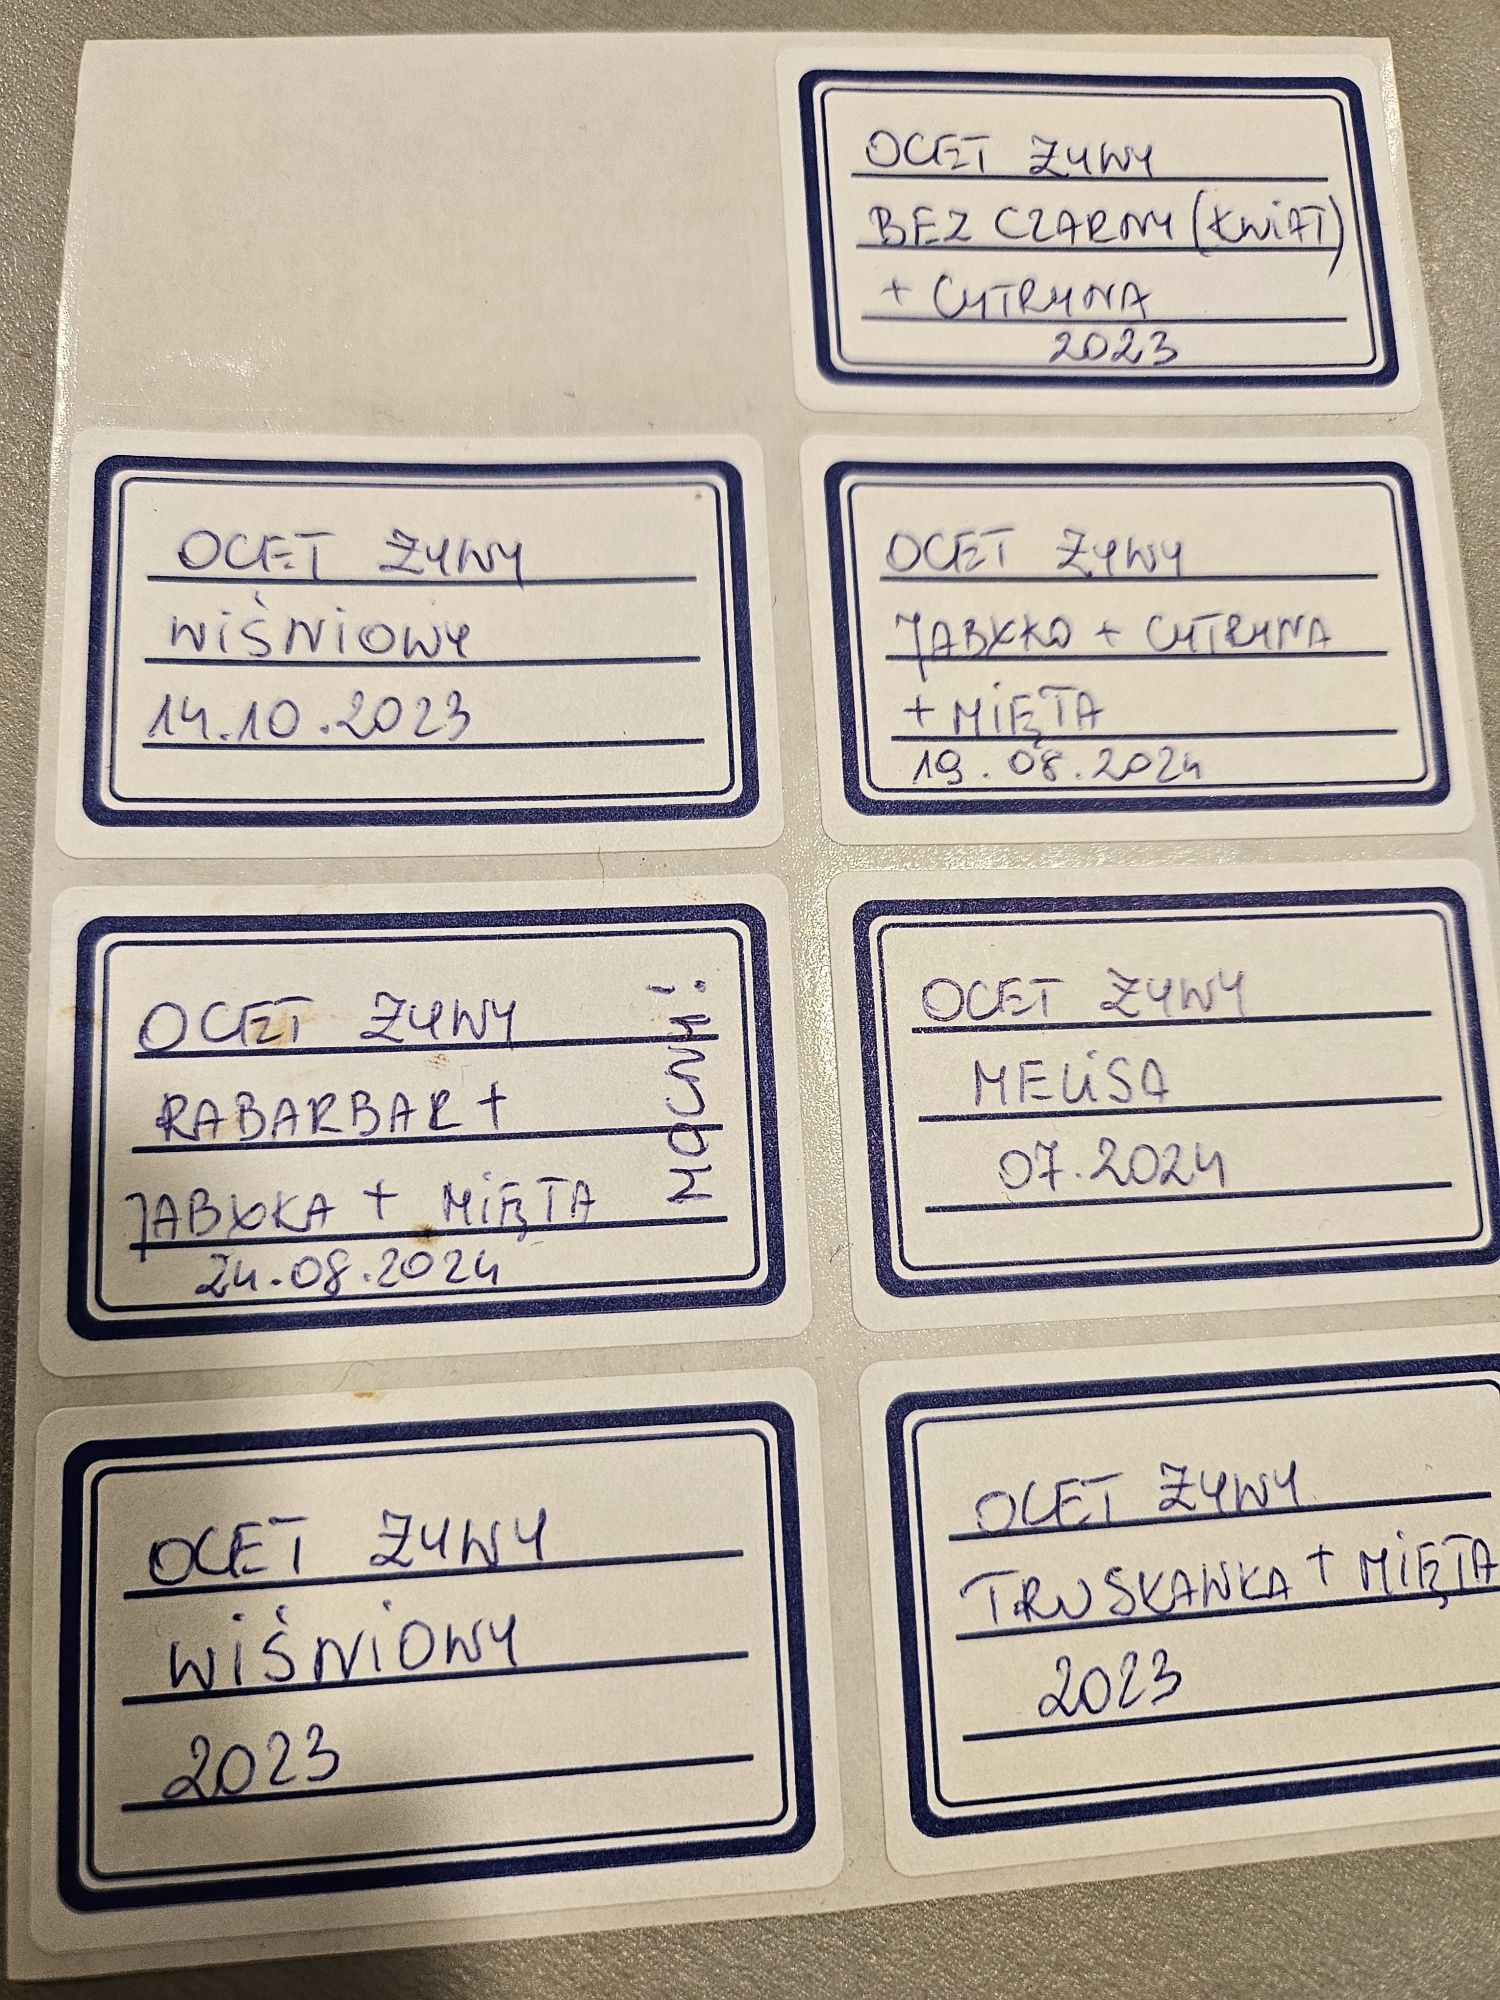 OCET ŻYWY
BEZ CZARNY (KWIAT)
+ CYTRYNA
2023
OCET ŻYWY
WIŚNIOWY
14.10.2023
OCET ŻYWY
JABŁKO + CYTRYNA
+ MIĘTA
19.08.2024
OCET ŻYWY
RABARBAR +
JABŁKA + MIĘTA
24.08.2024
MOCNY!
OCET ŻYWY
MELISA
07.2024
OCET ŻYWY
WIŚNIOWY
2023
OCET ŻYWY
TRUSKAWKA + MIĘTA
2023